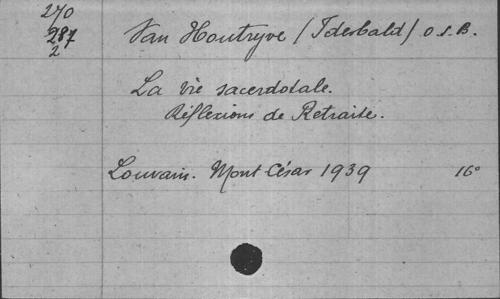 270
287
2
Van Houtryve / Idesbald / O.S.B.
La vie sacerdotale.
Réflexions de Retraite.
Louvain. Mont César 1939 16°